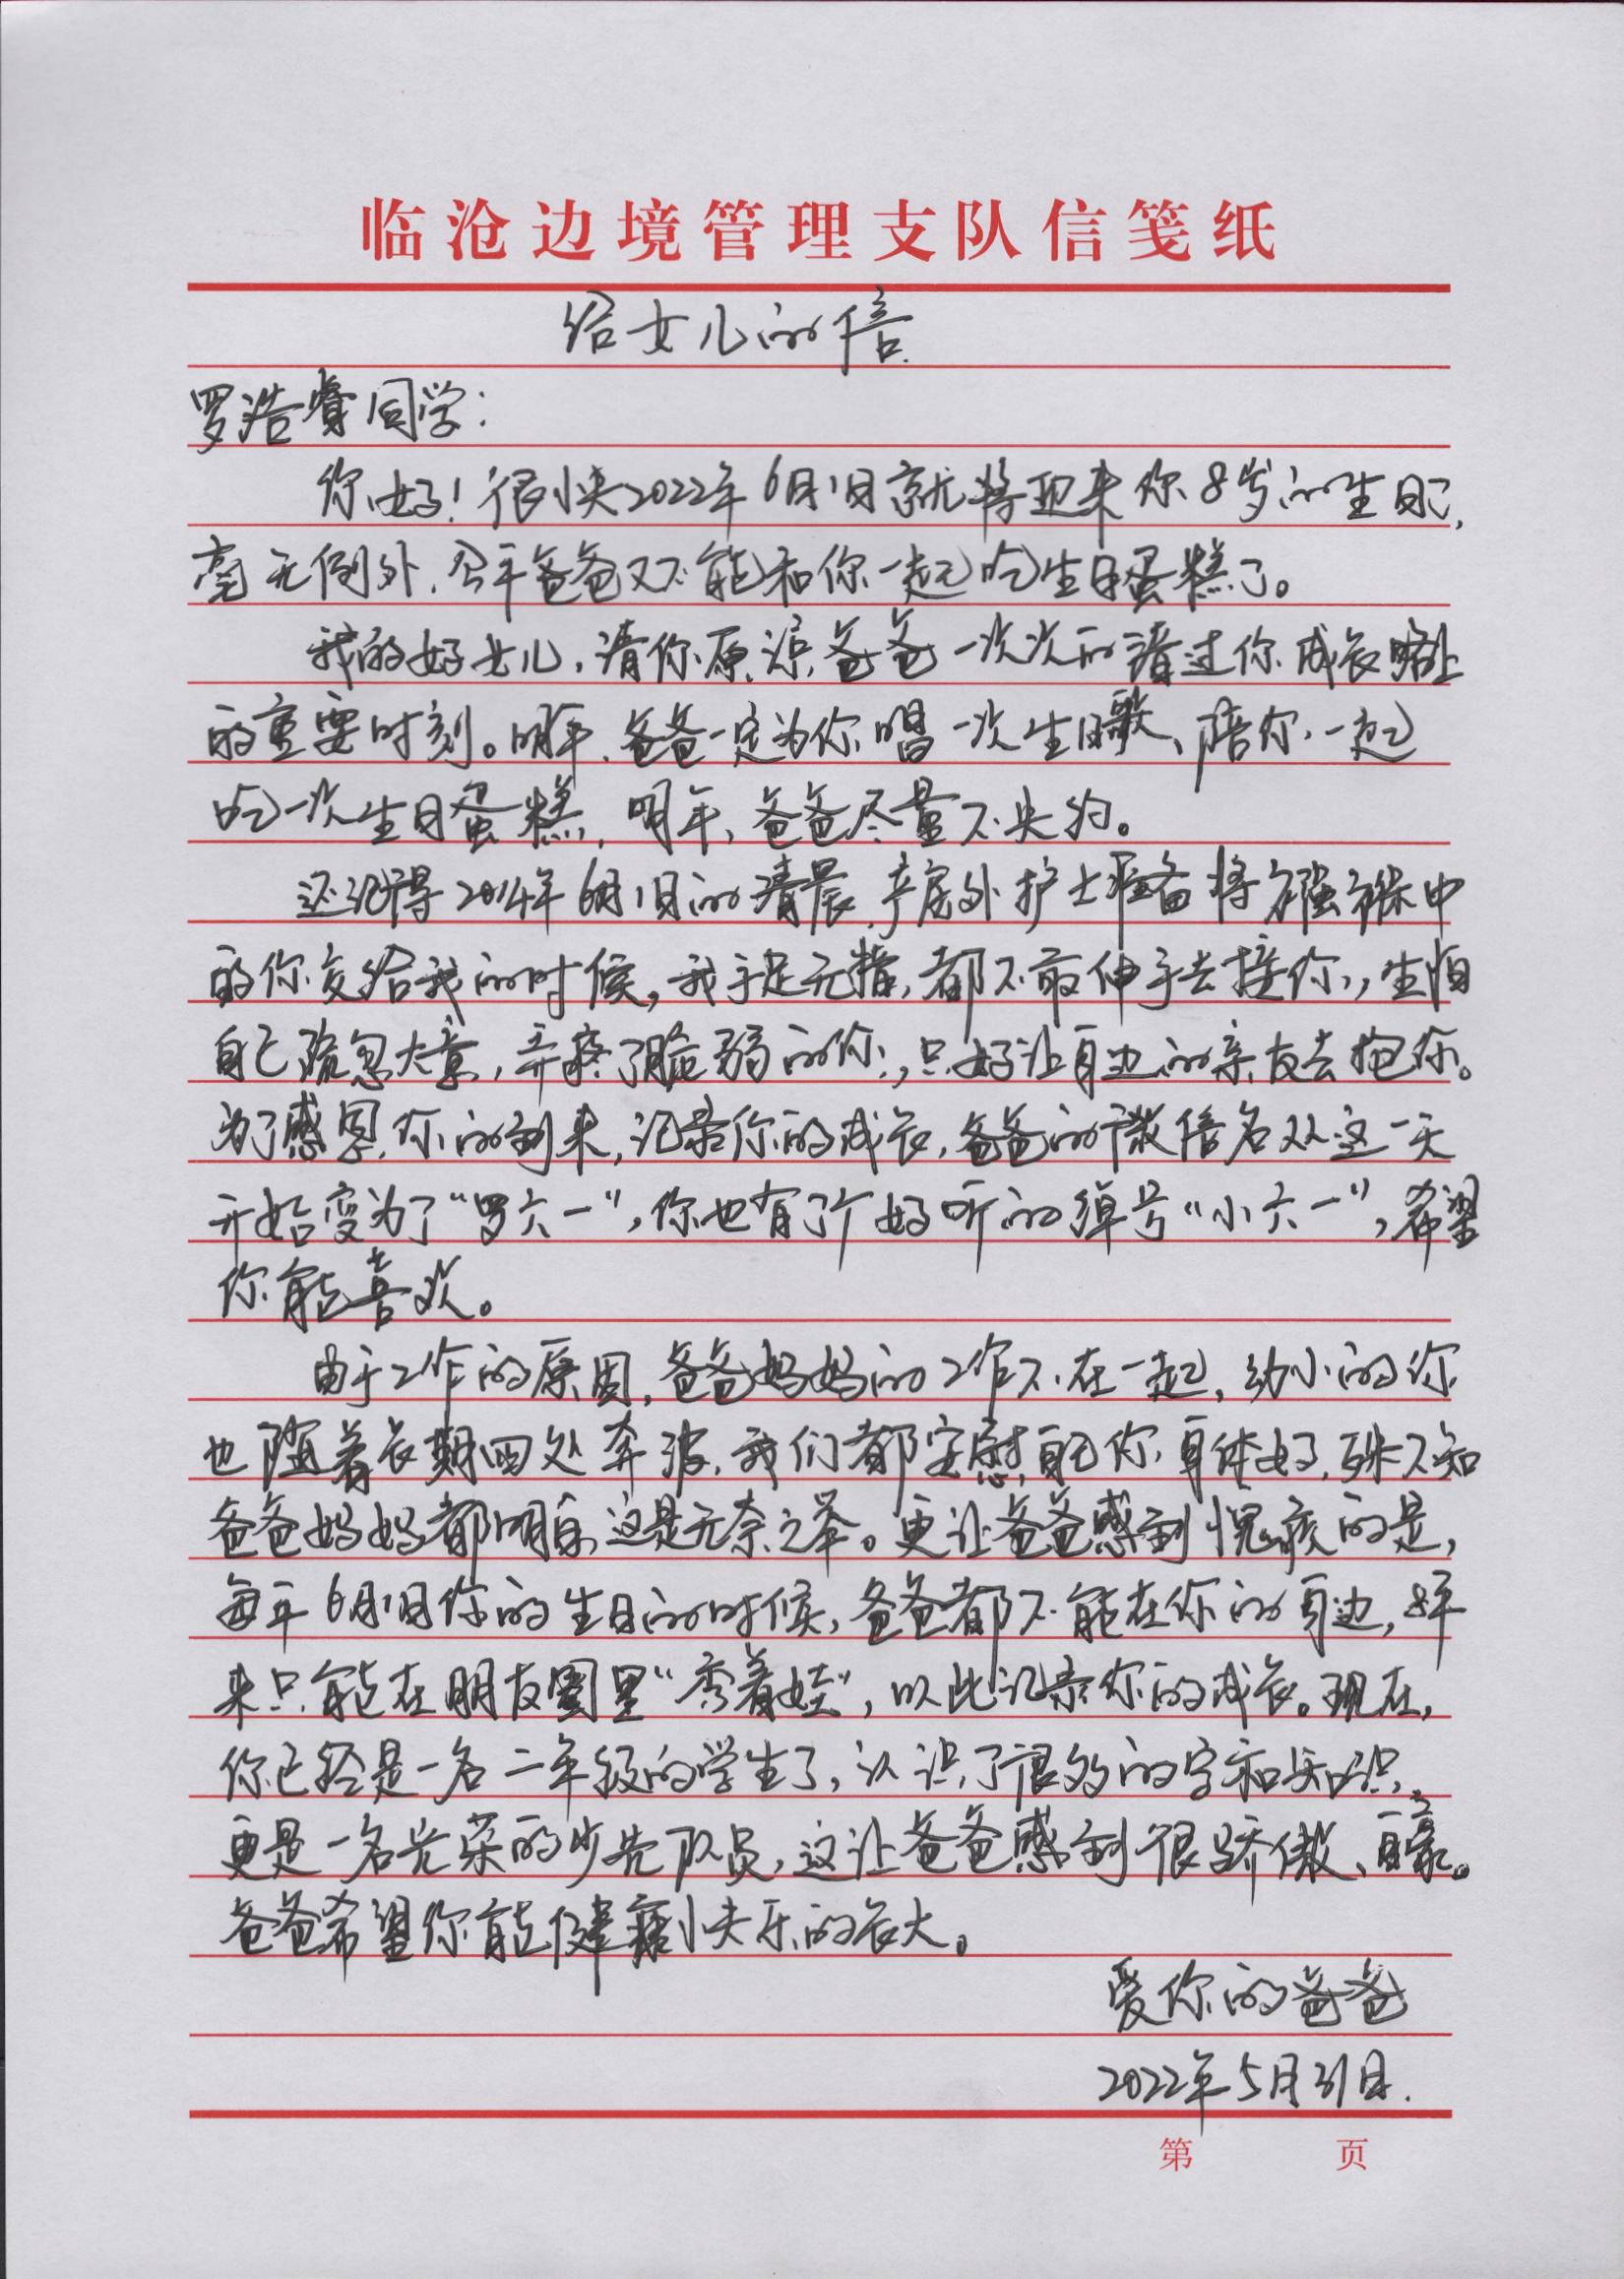 临沧边境管理支队信笺纸
给女儿的信.
罗浩睿同学：
你好！很快2022年6月1日就将迎来你8岁的生日了，
毫无例外，今年爸爸又不能和你一起吃生日蛋糕了。
我的好女儿，请你原谅爸爸一次次的错过你成长路上
的重要时刻。明年，爸爸一定为你唱一次生日歌、陪你一起
吃一次生日蛋糕，明年，爸爸尽量不失约。
还记得2014年6月1日的清晨，产房外护士准备将襁褓中
的你交给我的时候，我手足无措，都不敢伸手去接你，生怕
自己疏忽大意，弄疼了脆弱的你，只好让身边的亲友去抱你。
为了感恩你的到来，记录你的成长，爸爸的微信名从这一天
开始变为了“罗六一”，你也有了个好听的绰号“小六一”，希望
你能喜欢。
由于工作的原因，爸爸妈妈的工作不在一起，幼小的你
也随着长期四处奔波，我们都安慰自己你身体好，殊不知
爸爸妈妈都明白这是无奈之举。更让爸爸感到愧疚的是，
每年6月1日你的生日的时候，爸爸都不能在你的身边，8年
来只能在朋友圈里“秀着娃”，以此记录你的成长。现在，
你已经是一名二年级的学生了，认识了很多的字和知识，
更是一名光荣的少先队员，这让爸爸感到很骄傲、自豪。
爸爸希望你能健康快乐的长大。
爱你的爸爸
2022年5月31日.
第 页